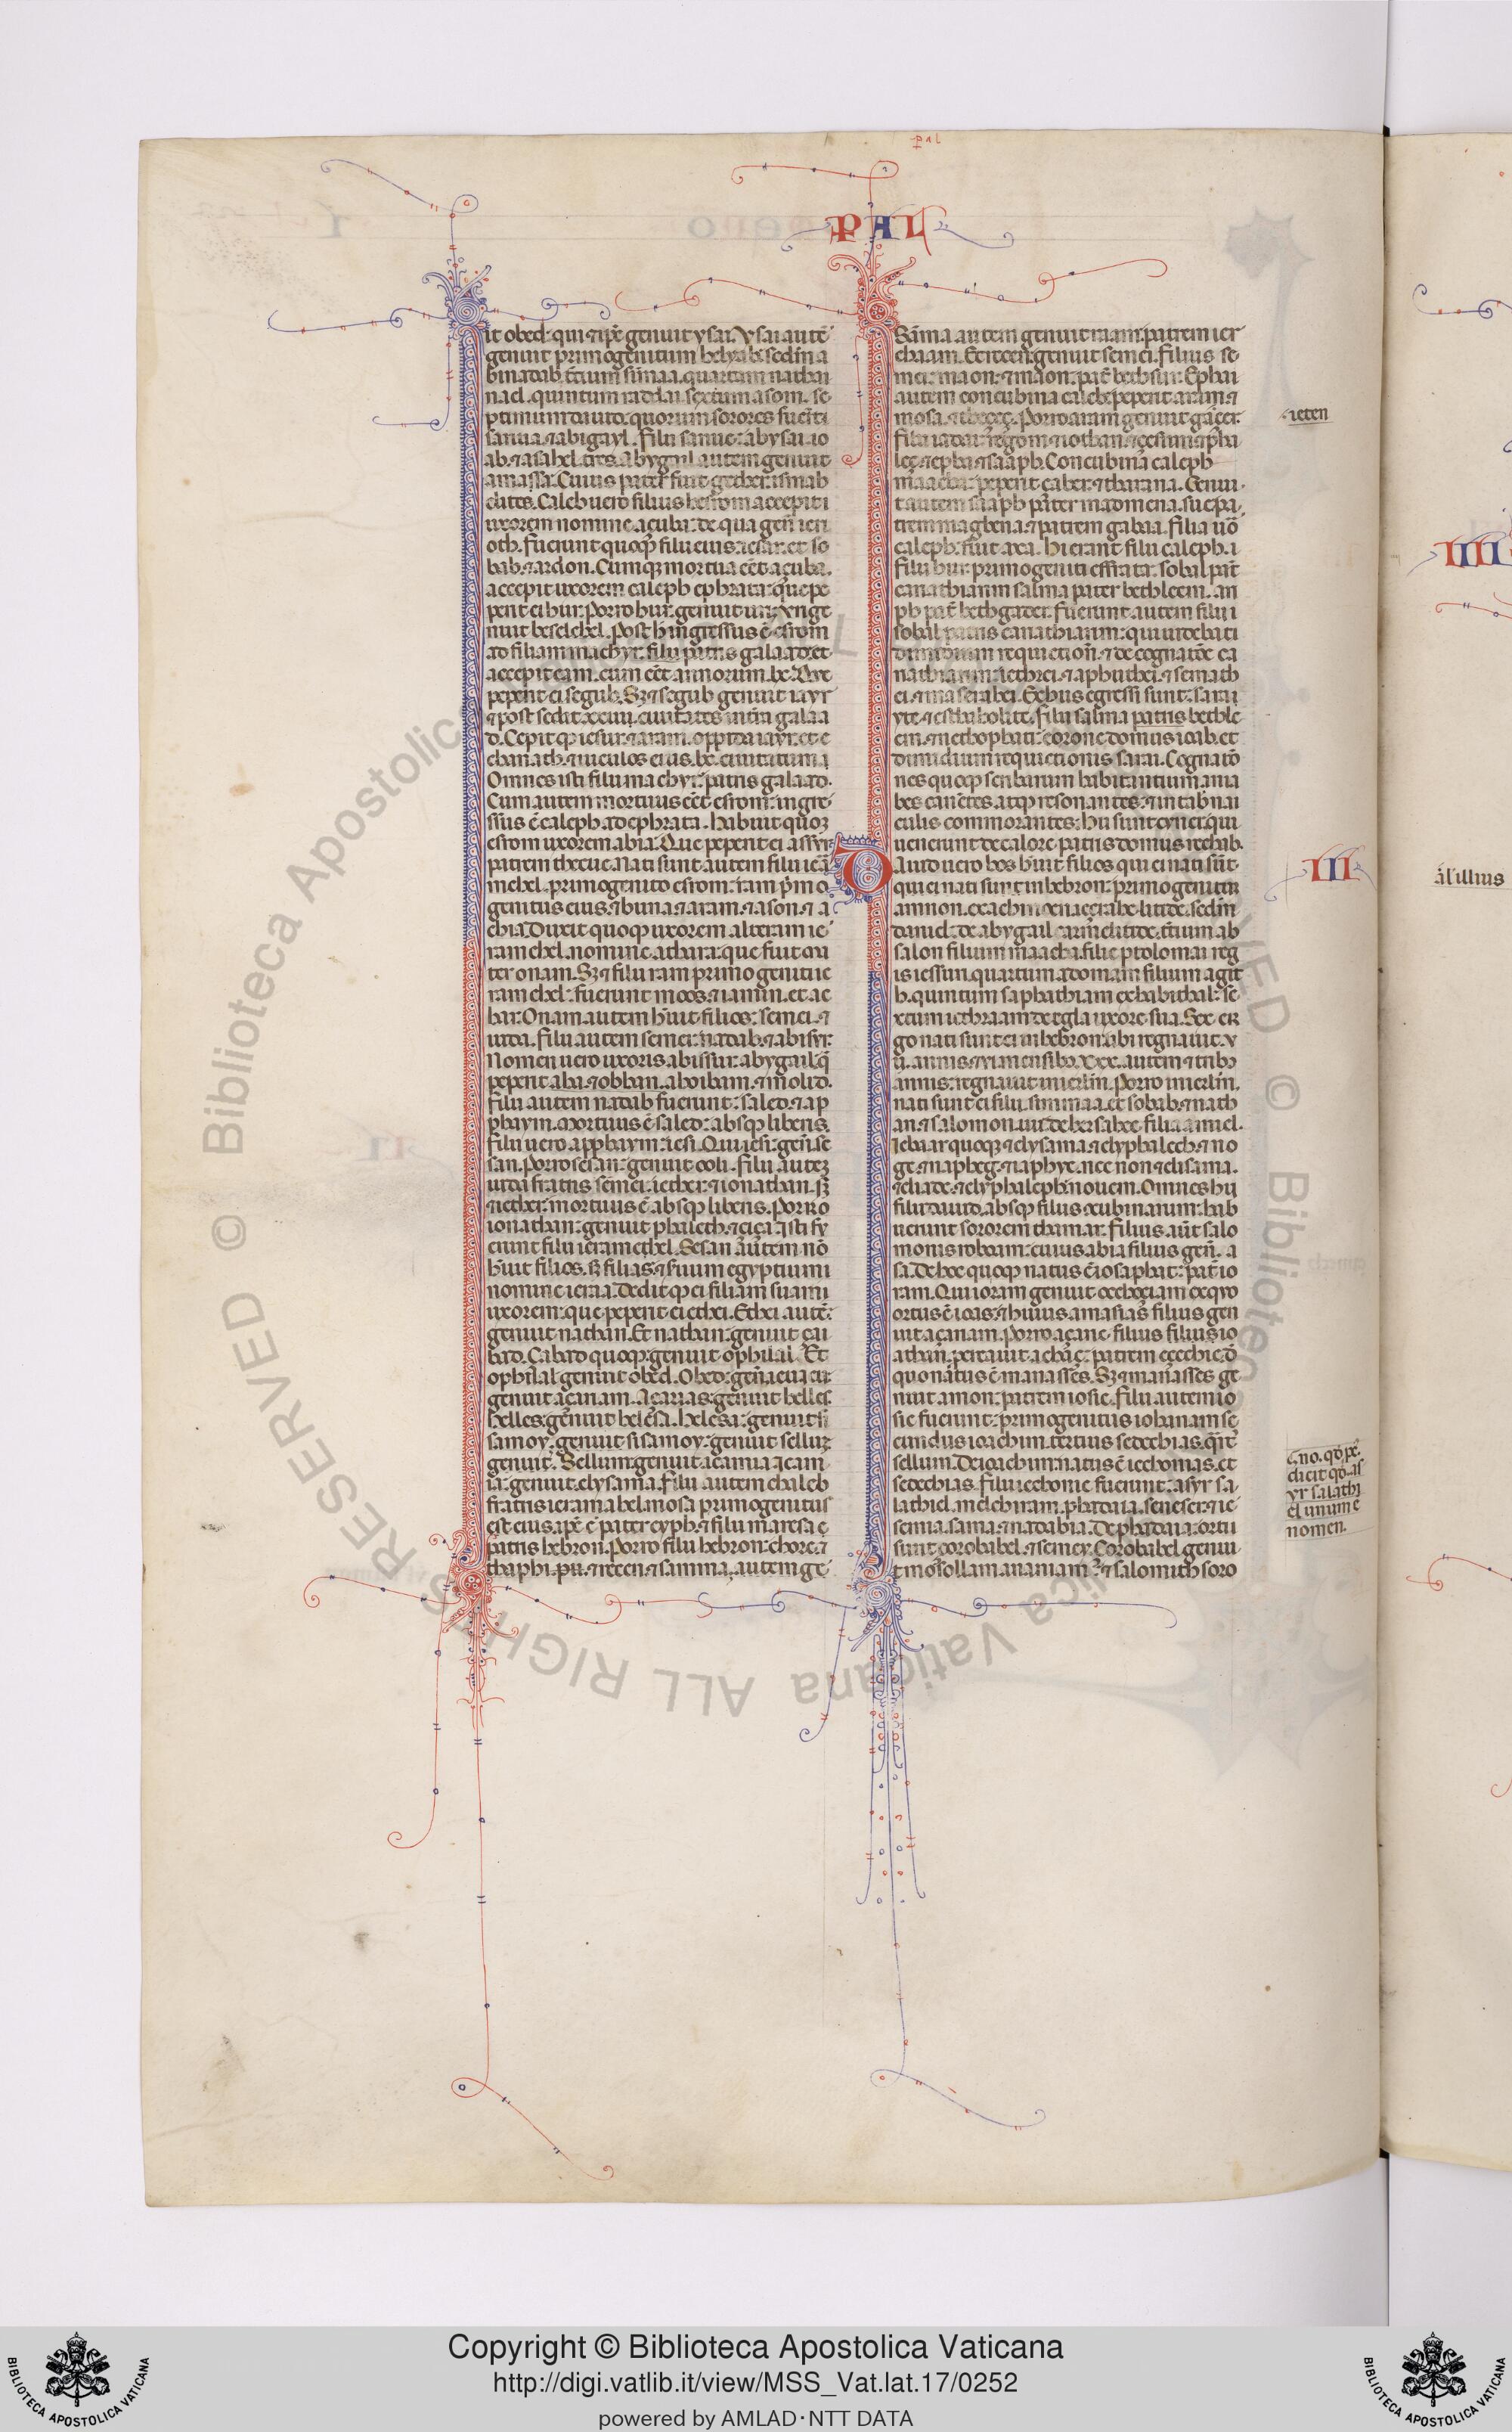 pal
PAL
it obed. qui ⁊ ip̃e genuit ysai. Ysai autẽ
genuit primogenitum helyab. sedm̃ a
binadab. t̃tium sim̃aa. quartum nathan
nael. quintum raddai. sextum asom. se
ptimum dauid. quorum sorores fuer̃t
saruia. ⁊ abigayl. Filii saruie: abysai. io
ab. ⁊ asahel. tres. Abygail autem genuit
amassa. Cuius pater fuit gether: ismah
elites. Caleb uero filius hesrom accepit
uxorem nomine açuba: de qua gen̄. ieri
oth. Fuerunt quoq̃ filii eius: iesar. et so
bab. ⁊ ardon. Cumq; mortua eẽt açuba.
accepit uxorem caleph ephrata: que pe
perit ei hur. Porro hur. genuit uri. Uri ge
nuit beselehel. Post h̃ ingressus ẽ esrom
ad filiam machyr. filii patris galaad. et
accepit eam. cum eẽt annorum .lx. Que
peperit ei segub. Sȝ ⁊ segub genuit iayr
⁊ possedit .xxiii. ciuitates in tr̃a galaa
d. Cepit q̃ iesur. ⁊ aram. oppida iayr. et c
hanath. ⁊ uiculos eius. lx. ciuitatum
Omnes isti filii machyr: patris galaad.
Cum autem mortuus eẽt esrom: ingre
ssus ẽ caleph. ad ephrata. Habuit quoȝ
esrom uxorem abia. Que peperit ei assyr
patrem thecue. Nati sunt autem filii ierã
mehel. primogenito esrom: ram p̃mo
genitus eius. ⁊ buna. ⁊ aram. ⁊ ason. ⁊ a
chia. Duxit quoq̃ uxorem alteram ie
ramehel. nomine athara: que fuit ma
ter onam. Sȝ ⁊ filii ram primogeniti ie
ramehel: fuerunt moos. ⁊ iamin. et ac
har. Onam autem h̃uit filios: semei. ⁊
iuda. Filii autem semei: nadab. ⁊ abisyr.
Nomen uero uxoris abissur: abygail q̃
peperit aba. ⁊ obban. ahoibam. ⁊ molid.
Filii autem nadab fuerunt: saled. ⁊ ap
phaym. Mortuus ẽ saled: absq̃ liberis.
Filii uero apphaym: iesi. Qui iesi: gen̄. se
san. Porro sesan: genuit ooli. Filii auteȝ
iuda fratris semei: iether. ⁊ ionathan. sȝ
⁊ iether mortuus ẽ absq̃ liberis. Porro
ionathan: genuit phaleth. ⁊ ciça. Isti fu
erunt filii ieramehel. Sesan autem nõ
h̃uit filios. sȝ filias. ⁊ seruum egyptium
nomine ieraa. Dedit q̃ ei filiam suam
uxorem: que peperit ei ethei. Ethei autẽ:
genuit nathan. Et nathan: genuit ça
bad. Çabad quoq̃: genuit ophilal. Et
ophilal genuit obed. Obed: gen̄. ieu. ieu
genuit açariam. Açarias: genuit helles.
helles: genuit helesa. Helesa: genuit si
samoy. genuit sisamoy: genuit selluȝ
genuit. Sellum: genuit icamia. icam
ia: genuit elysama. Filii autem chaleb
fratris ieramahel. mosa primogenitus
eius. ip̃e ẽ pater cyph. ⁊ filii maresa
patris hebron. Porro filii hebron: chore. ⁊
thaphi. pu. ⁊ recen. ⁊ samma. autem ge
Sãma autem genuit raam. patrem ier
chaam. Et recen: genuit semei. Filius se
mei: maon. ⁊ maon: pat̃ bethsur. Epha
autem concubina caleb peperit aram. ⁊
mosa. ⁊ theççç. Porro aram genuit gaççeç.
Filii iadai: regom. ⁊ iothan. ⁊ çesum ⁊ pha
leç. ⁊ epha. ⁊ saaph. Concubina caleph
maacha: peperit çaber. ⁊ tharana. Genui
t autem saaph pater madmena. sue pa
trem magbena. ⁊ patrem gabaa. Filia uõ
caleph: fuit axa. Hi erant filii caleph.
filii hur. primogeniti effrata: sobal pat̃
cariathiarim salma pater bethleem. ari
ph pat̃ bethgader. Fuerunt autem filii
sobal patris cariathiarim: qui uidebat
dimidium requietion̄. ⁊ de cognatõe ca
riathiarim: iethrei. ⁊ aphuthei. ⁊ semath
ei. ⁊ maserahei. Ex hiis egressi sunt: sarai
yte. ⁊ esthaholite. Filii salma patris bethle
em. ⁊ nethophati: corone domus ioab. et
dimidium requietionis sarai. Cognatõ
nes quoq̃ scribarum habitantium in ia
bes canẽtes. atq̃ resonantes. ⁊ in tab̃na
culis commorantes: hii sunt cynei: qui
uenerunt de calore. patris domus rechab.
Dauid uero hos h̃uit filios qui ei nati sũt
qui ei nati sunt in hebron: primogenitũ
amnon. ex achinoen ieçrahelitide. sedm̃
daniel. de abygail carmelitide. t̃tium ab
salon filium maacha. filie ptolomai reg
is iessuri. quartum adoniam filium agit
h. quintum saphathiam ex habithal: se
xtum iethraam de egla uxore sua. Sex er
go nati sunt ei in hebron: ubi regnauit. v
ii. annis. ⁊ vi mensibȝ. xxx. autem ⁊ tribȝ
annis: regnauit in ierl̃m. Porro in ierl̃m.
nati sunt ei filii. simmaa. et sobab. ⁊ nath
an. ⁊ salomon. iiii. de bersabee. filia amiel.
Iebaar quoq̃ ⁊ elysama. ⁊ elyphalech. ⁊ no
ge. ⁊ napheg. ⁊ naphye. nec non ⁊ elisama.
⁊ eliade. ⁊ elyphaleph. nouem. Omnes hii
filii dauid. absq̃ filiis ɔcubinarum: hab
uerunt sororem thamar. Filius. aũt salo
monis roboam: cuius abia filius gen̄. a
sa. De hoc quoq̃ natus ẽ iosaphat: pat̃ io
ram. Qui ioram genuit ochoçiam ex quo
ortus ẽ ioas. ⁊ huius. amasias filius gen
uit açariam. Porro açarie. filius filius io
athan. percauit achaç: patrem eçechie. d̃
quo natus ẽ manasses. Sȝ ⁊ manasses ge
nuit amon: patrem iosie. Filii autem io
sie fuerunt: primogenitus iohanam se
cundus ioachim. tertius sedechias. q̃rt̃
sellum. De ioachim natus ẽ iechonias. et
sedechias. Filii iechonie fuerunt: asyr sa
lathiel. melchiram. phadaia. seneser. ⁊ ie
semia. sama. ⁊ nadabia. De phadaia: orti
sunt çorobabel. ⁊ semey. Çorobabel genui
t mosollam. ananiam. ⁊ salomith soro
ieten
III
IIII
⁊ no. qđ pẽ.
dicit qđ. as
yr salathi
el unum ẽ
nomen.
al̃ illius
Copyright © Biblioteca Apostolica Vaticana
http://digi.vatlib.it/view/MSS_Vat.lat.17/0252
powered by AMLAD·NTT DATA
BIBLIOTECA APOSTOLICA VATICANA
BIBLIOTECA APOSTOLICA VATICANA
© Biblioteca Apostolica Vaticana ALL RIGHTS RESERVED